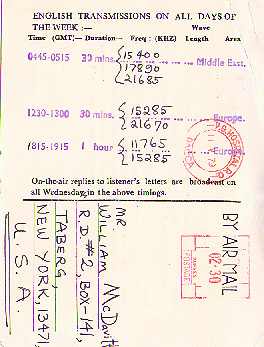 ENGLISH TRANSMISSIONS ON ALL DAYS OF
THE WEEK :—
Wave
Time (GMT)— Duration— Freq : (KHZ) Length Area
0445-0515 30 mins. 15400
17890 Middle East.
21685
1230-1300 30 mins. 15285
21670 Europe.
1815-1915 1 hour 11765
15285 Europe.
On-the-air replies to listener's letters are broadcast on
all Wednesday in the above timings.
BY AIR MAIL
02.30
POSTAGE
MR
WILLIAM McDavitt
R.D. #2, BOX-141,
TABERG,
NEW YORK, 13471,
U.S.A.